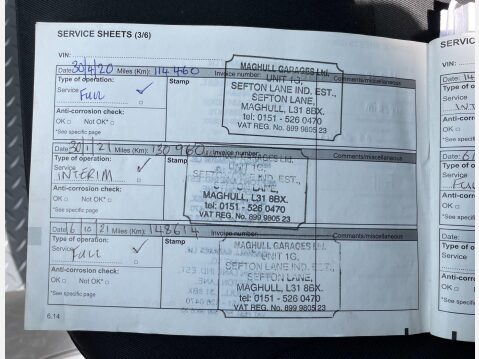 SERVICE SHEETS (3/6)
SERVIC
VIN:
Date: 30/4/20 Miles (Km): 114460 Invoice number:
Type of operation: Stamp Comments/miscellaneous
Service ✓
Full
MAGHULL GARAGES Ltd.
UNIT 1G,
SEFTON LANE IND. EST.,
SEFTON LANE,
MAGHULL, L31 8BX.
tel: 0151 - 526 0470
VAT REG. No. 899 9805 23
Anti-corrosion check:
OK □ Not OK* □
*See specific page
Date: 30/1/21 Miles (Km): 130960 Invoice number:
Type of operation: Stamp Comments/miscellaneous
Service ✓
INTERIM
MAGHULL GARAGES Ltd.
UNIT 1G,
SEFTON LANE IND. EST.,
SEFTON LANE,
MAGHULL, L31 8BX.
tel: 0151 - 526 0470
VAT REG. No. 899 9805 23
Anti-corrosion check:
OK □ Not OK* □
*See specific page
Date: 6/10/21 Miles (Km): 148614 Invoice number:
Type of operation: Stamp Comments/miscellaneous
Service ✓
Full
MAGHULL GARAGES Ltd.
UNIT 1G,
SEFTON LANE IND. EST.,
SEFTON LANE,
MAGHULL, L31 8BX.
tel: 0151 - 526 0470
VAT REG. No. 899 9805 23
Anti-corrosion check:
OK □ Not OK* □
*See specific page
6.14
VIN:
Type of o
Service
Anti-corro
OK □
*See specific
Type of o
Service
Anti-corro
OK □
*See specific
Type of o
Service
Anti-corro
OK □
*See specific